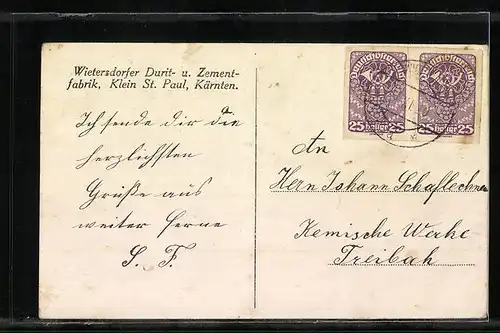 Wietersdorfer Durit- u. Zement-
fabrik, Klein St. Paul, Kärnten.
Ich sende dir die
herzlichsten
Grüße aus
weiter Ferne
S. F.
Deutschösterreich Deutschösterreich
25 heller 25 25 heller 25
An
Herrn Johann Schaflechner
Kemische Werke
Treibah